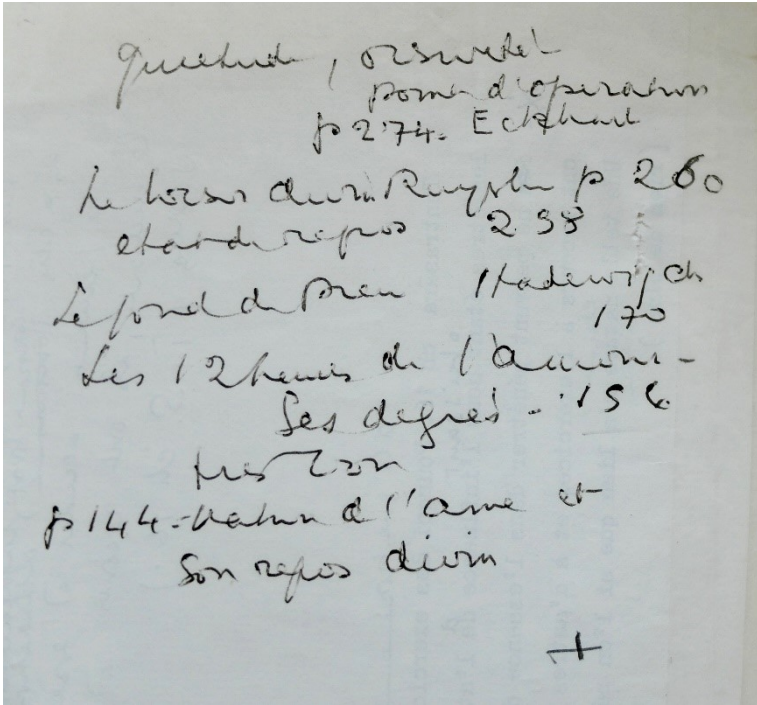 quietude, oisiveté
point d'opération
p 274. Eckhart
Le loisir divin Ruysbr p 260
etat de repos 238
Le fond de Dieu Hadewijch
170
Les 12 heures de l'amour -
Ses degrés - 156
tres bon
p 144 - Nature de l'ame et
son repos divin
+